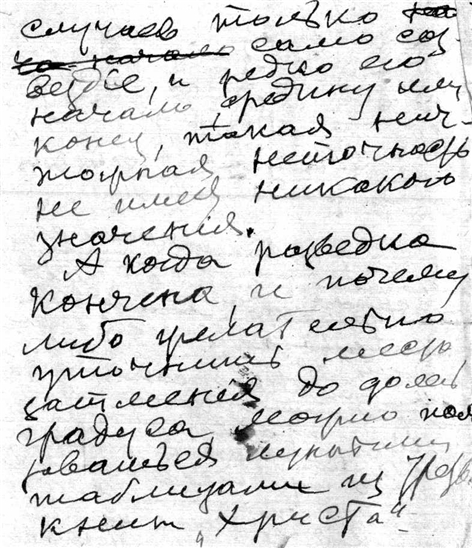 случаев только
само соз-
вездіе, и редко его
начало, средину или
конец, такая нич-
тожная неточность
не имела никакого
значения.
А когда разведка
кончена, и почему
либо желательно
уточнить место
затмения до долей
градуса, можно поль
зоваться
таблицами из
книги „Христа“.